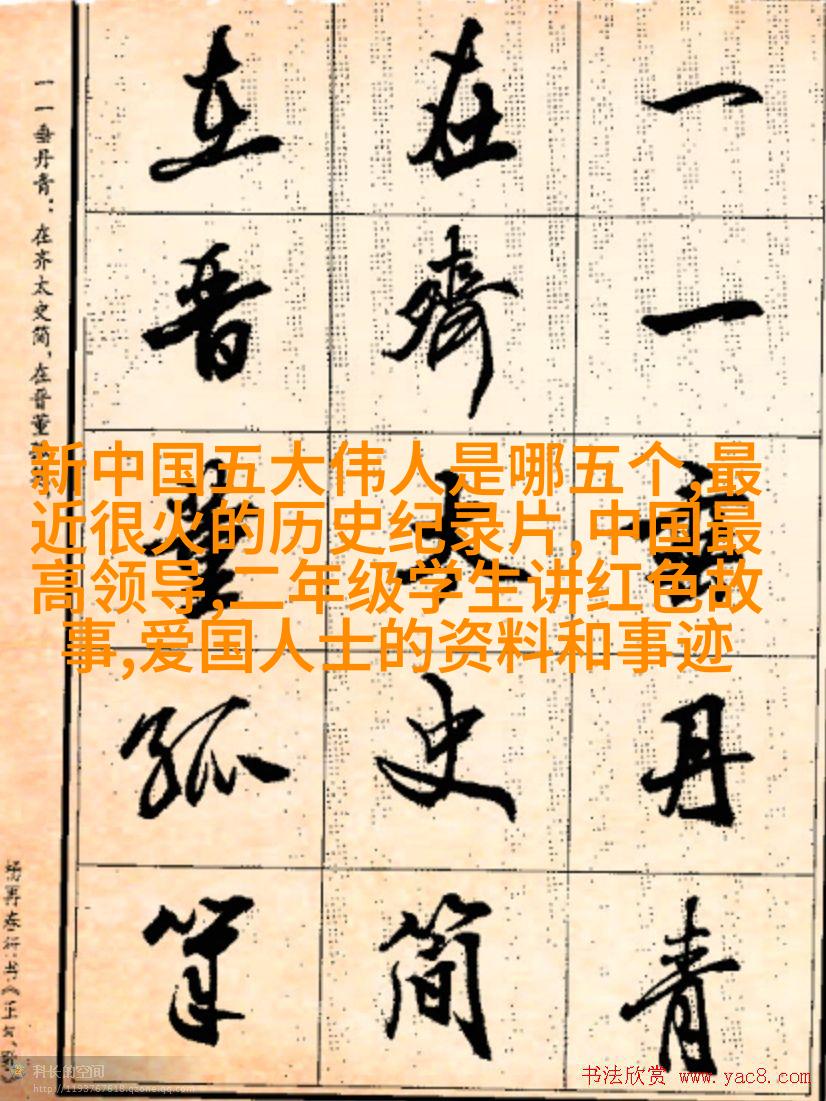 一一垂丹青
在齊太史简
在晋董狐筆
一一垂丹青：在齐太史简，在晋董
杨再春行书《正气歌》
新中国五大伟人是哪五个,最
近很火的历史纪录片,中国最
高领导,二年级学生讲红色故
事,爱国人士的资料和事迹
科长的空间
http://1193767618.qzone.qq.com
书法欣赏 www.yac8.com